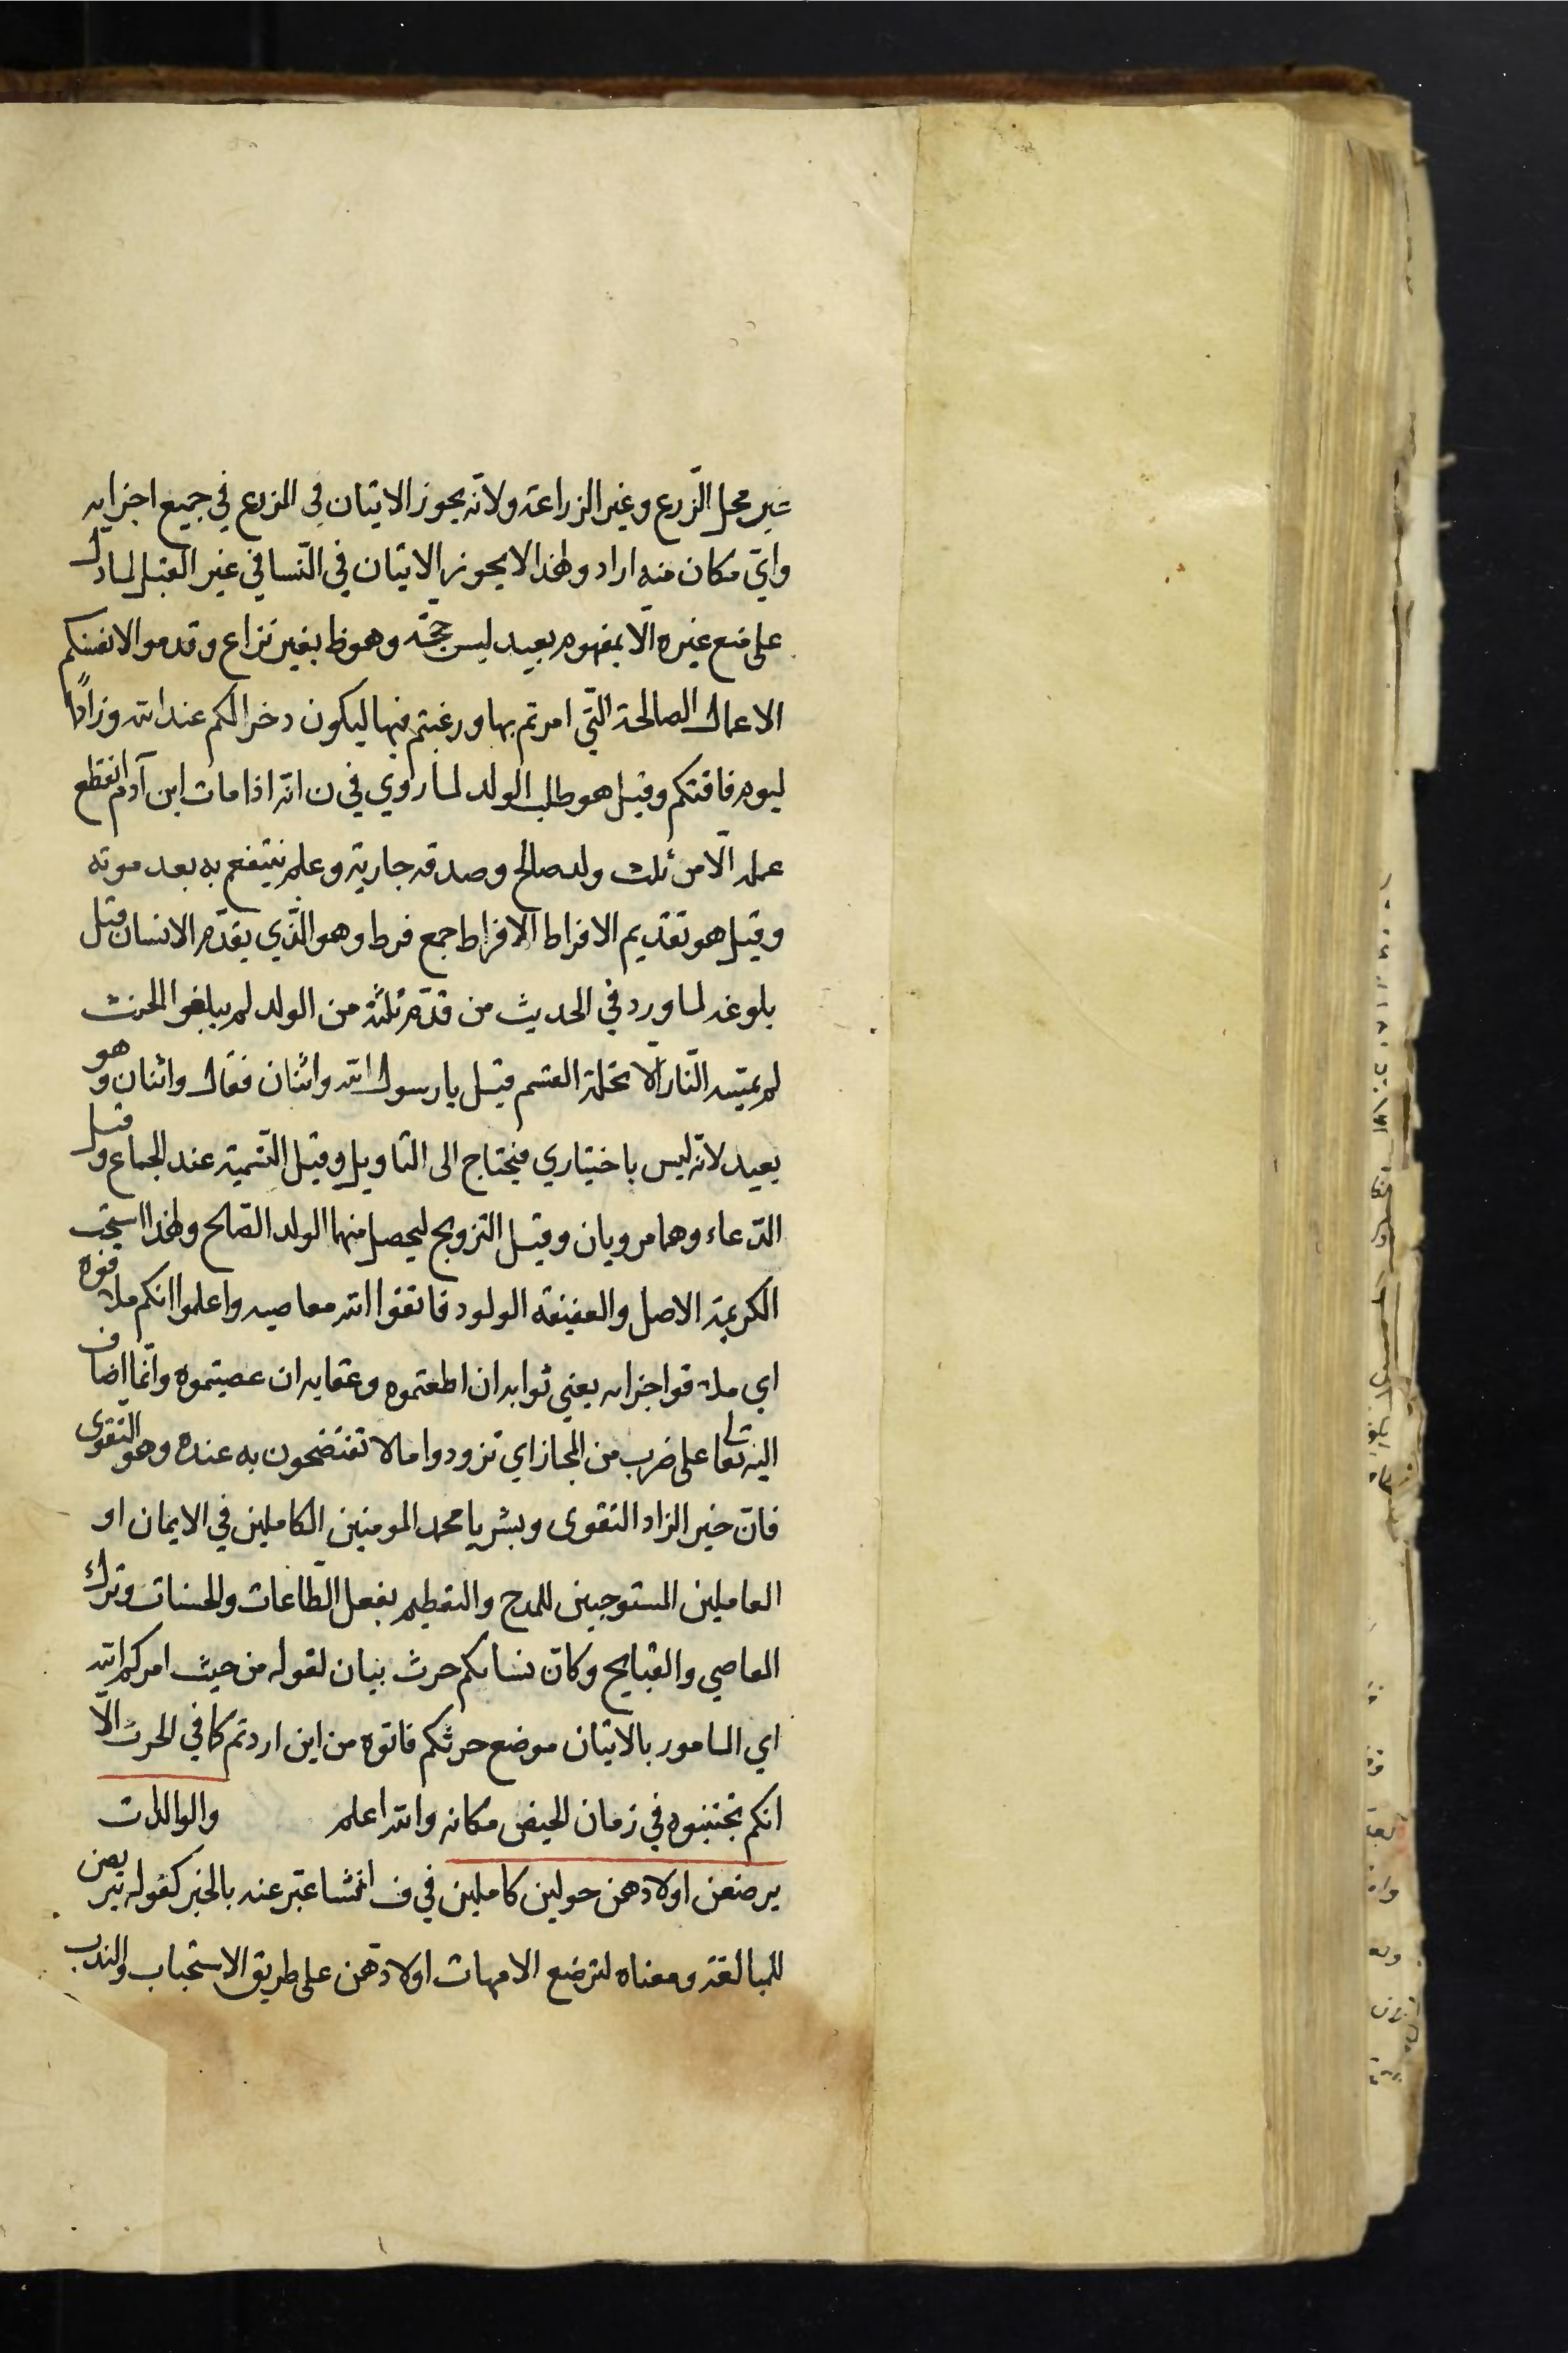 غير محل الزّرع وغير الزراعة ولانّه يجوز الاتيان في الزرع في جميع اجزايه
وايّ مكان منه اراد ولهذا لا يجوز الاتيان في النّسا في غير القبل لما دلّ
على منع غيره الا بمفهوم بعيد ليس بحجّة وهو ظ بغير نزاع وقدموا لانفسكم
الاعمال الصالحة التّي امرتم بها ورغبتم فيها ليكون دخرا لكم عند الله وزادًا
ليوم فاقتكم وقيل هو طلب الولد لما روي في ن انّه اذا مات ابن آدم انقطع
عمله الّا من ثلث ولد صالح وصدقه جارية وعلم ينتفع به بعد موته
وقيل هو تقديم الافراط الافراط جمع فرط وهو الّذي يقدّم الانسان قبل
بلوغه لما ورد في الحديث من قدّم ثلثة من الولد لم يبلغوا الحنث
لم يمسّه النّار الّا تحلة القسم قيل يا رسول الله واثنان فقال واثنان وهو
بعيد لانّه ليس باختياري فيحتاج الى التاويل وقيل التّسمية عند الجماع وقيل
الدّعاء وهما مرويان وقيل التزويج ليحصل منهما الولد الصّالح ولهذا استحب
الكريمة الاصل والعفيفه الولود فاتقوا الله معاصيه واعلموا انكم ملاقوه
اي ملاقوا جزاءه يعني ثوابه ان اطعتموه وعقابه ان عصيتموه وانّما اضاف
اليه تعالى على ضرب من المجاز اي تزودوا ما لا تفتضحون به عنده وهو التقوى
فانّ خير الزاد التقوى وبشر يا محمد المومنين الكاملين في الايمان او
العاملين المستوجبين للمدح والتعظيم بفعل الطّاعات والحسنات وترك
المعاصي والقبايح وكانّ نساىكم حرث بيان لقوله من حيث امركم الله
اي المامور بالاتيان موضع حرثكم فاتوه من اين اردتم كما في الحرث الّا
انكم تجتنبوه في زمان الحيض مكانه والله اعلم والوالدات
يرضعن اولادهن حولين كاملين في ف انشا عبّر عنه بالخبر كقوله يتربصن
للمبالغة ومعناه لترضع الامهات اولادهّن على طريق الاستحباب والندب